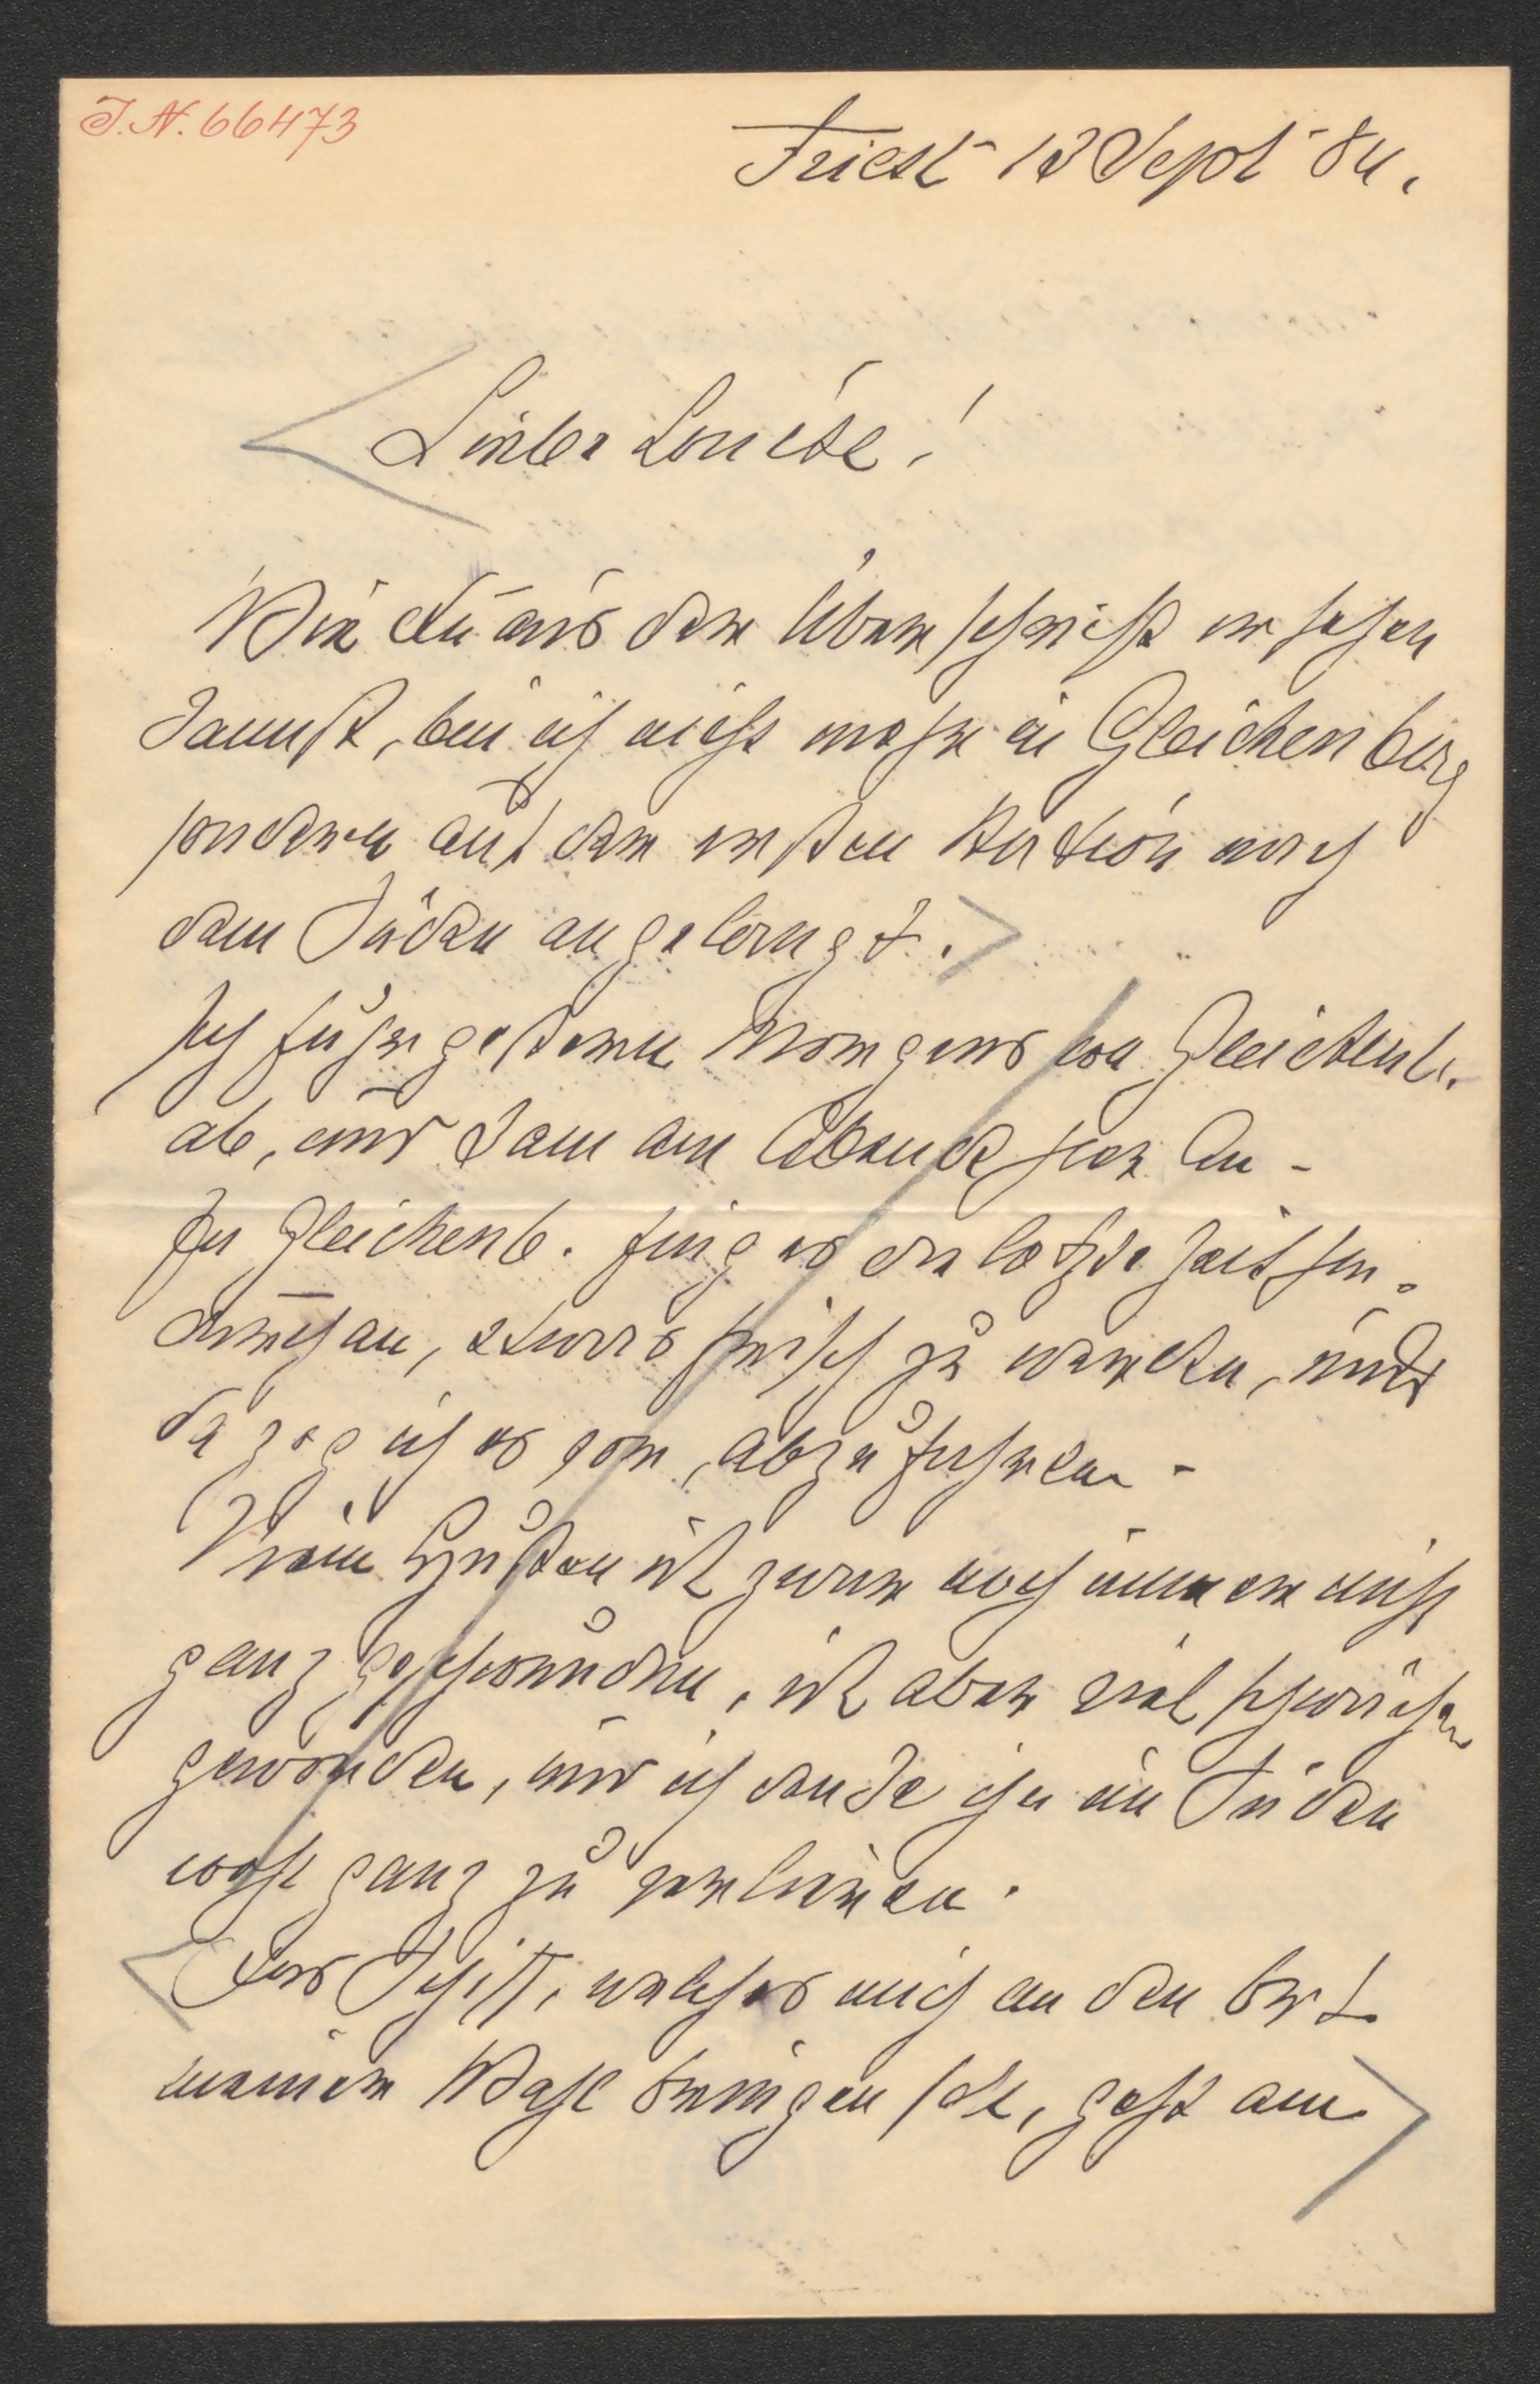 J. N. 66473
Triest 13 Sept 84.
Liebe Louise!
Wie Du aus der Überschrift ersehen
kannst, bin ich nicht mehr in Gleichenberg
sondern auf der ersten Station nach
dem Süden angelangt.
Ich fuhr gestern Morgens von Gleichenb.
ab, und kam am Abend hier an –
In Gleichenb. fing es die letzte Zeit hin-
durch an, etwas frisch zu werden, und
da zog ich es vor, abzufahren –
Mein Husten ist zwar noch immer nicht
ganz geschwunden, ist aber viel schwächer
geworden, und ich denke ihn im Süden
wohl ganz zu verlieren.
Das Schiff, welches mich an den Ort
meiner Wahl bringen soll, geht am